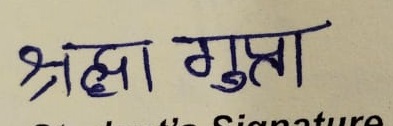 श्रद्धा गुप्ता
Student's Signature